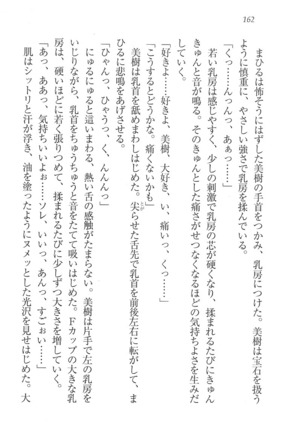 162
まひるは怖そうにはずした美樹の手首をつかみ、乳房につけた。美樹は宝石を扱うように慎重に、やさしい強さで乳房を揉んでいる。
「くっ……んっんっ、あっ……」
若い乳房は感じやすく、少しの刺激で乳房の芯が硬くなり、揉まれるたびにきゅんきゅんと音が鳴る。そのきゅんとした痛さがせつなくなるほどの気持ちよさを生みだ
「こうするとどうかな。痛くないかも」
「好きよ……好きよ、美樹、大好き、い、痛いっ、くっ……」
美樹は乳首を舐めまわしはじめた。尖らせた舌先で乳首を前後左右に転がして、まひるに悲鳴をあげさせる。
「ひゃんっ、ひゃうっ、く、んんんっ」
にゅるにゅると動きまわる、熱い舌の感触がたまらない。美樹は片手で左の乳房をいじりながら、乳首をちゅうちゅうと音をたてて吸いはじめた。Fカップの大きな乳房は、硬いほどに若く張りつめて、揉まれるたびに少しずつ大きさを増していく。
「あっ、あっっ、気持ちいいよぉ……レ、いいっ、あんっ、すごぉい……」
肌はシットリと汗が浮き、油を塗ったようにヌメッとした光沢を見せはじめた。大